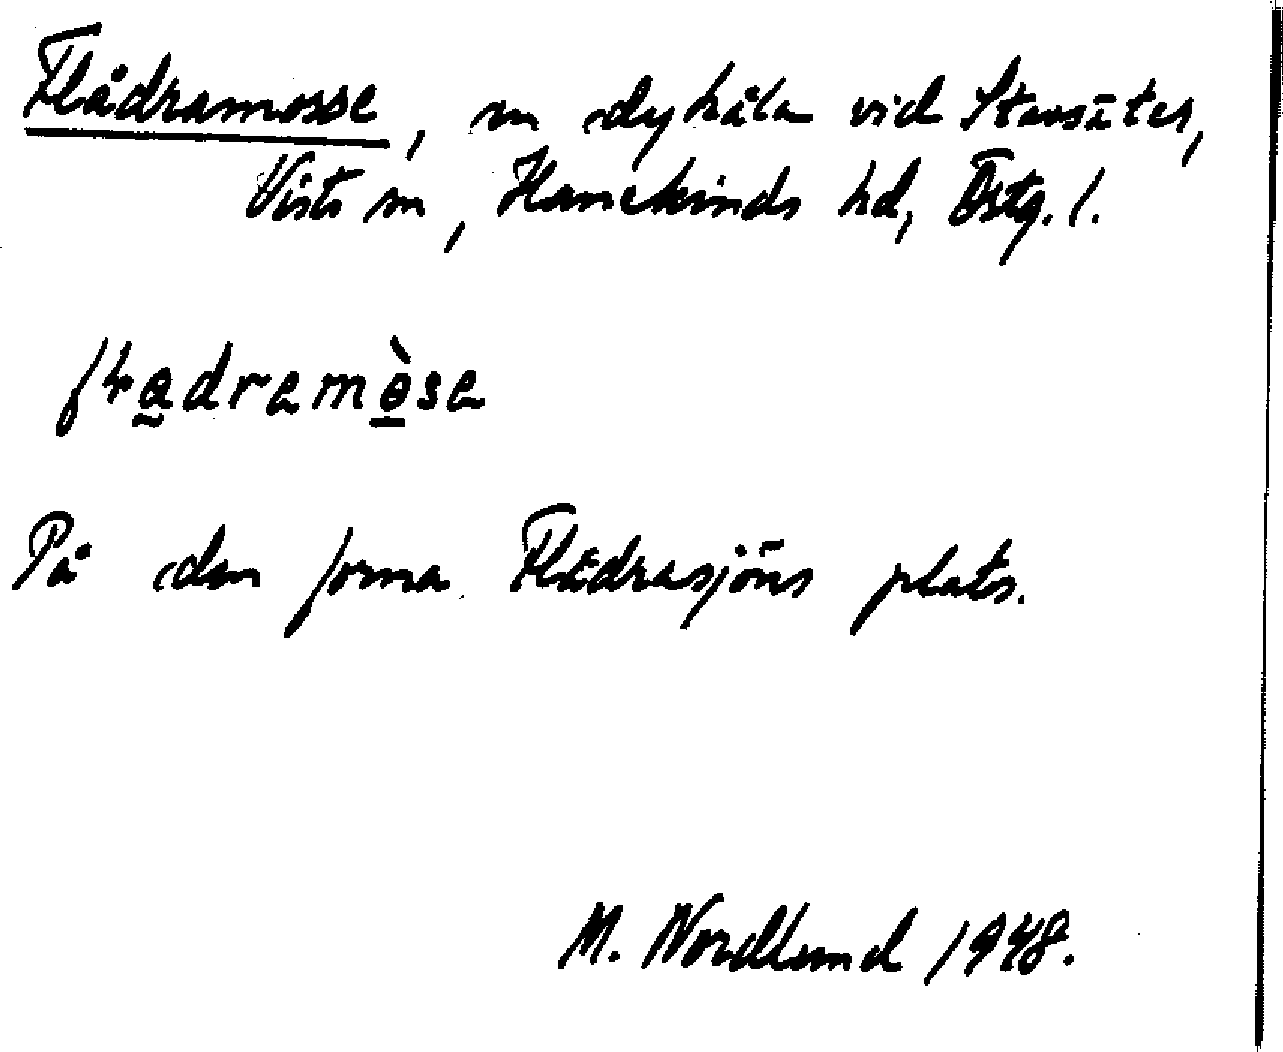 Flådramosse, en dyhåla vid Stavsäter,
Vists sn, Hanekinds hd, Östg. l.
På den forna Flådrasjöns plats.
M. Nordlund 1948.